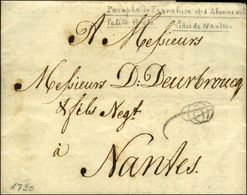 Paraphe de Franchise et d'Abonnem
Petite Poste Ville de Nantes
A Messieurs
Messieurs D. Deurbroucq
& fils Negt.
à
Nantes.
1790